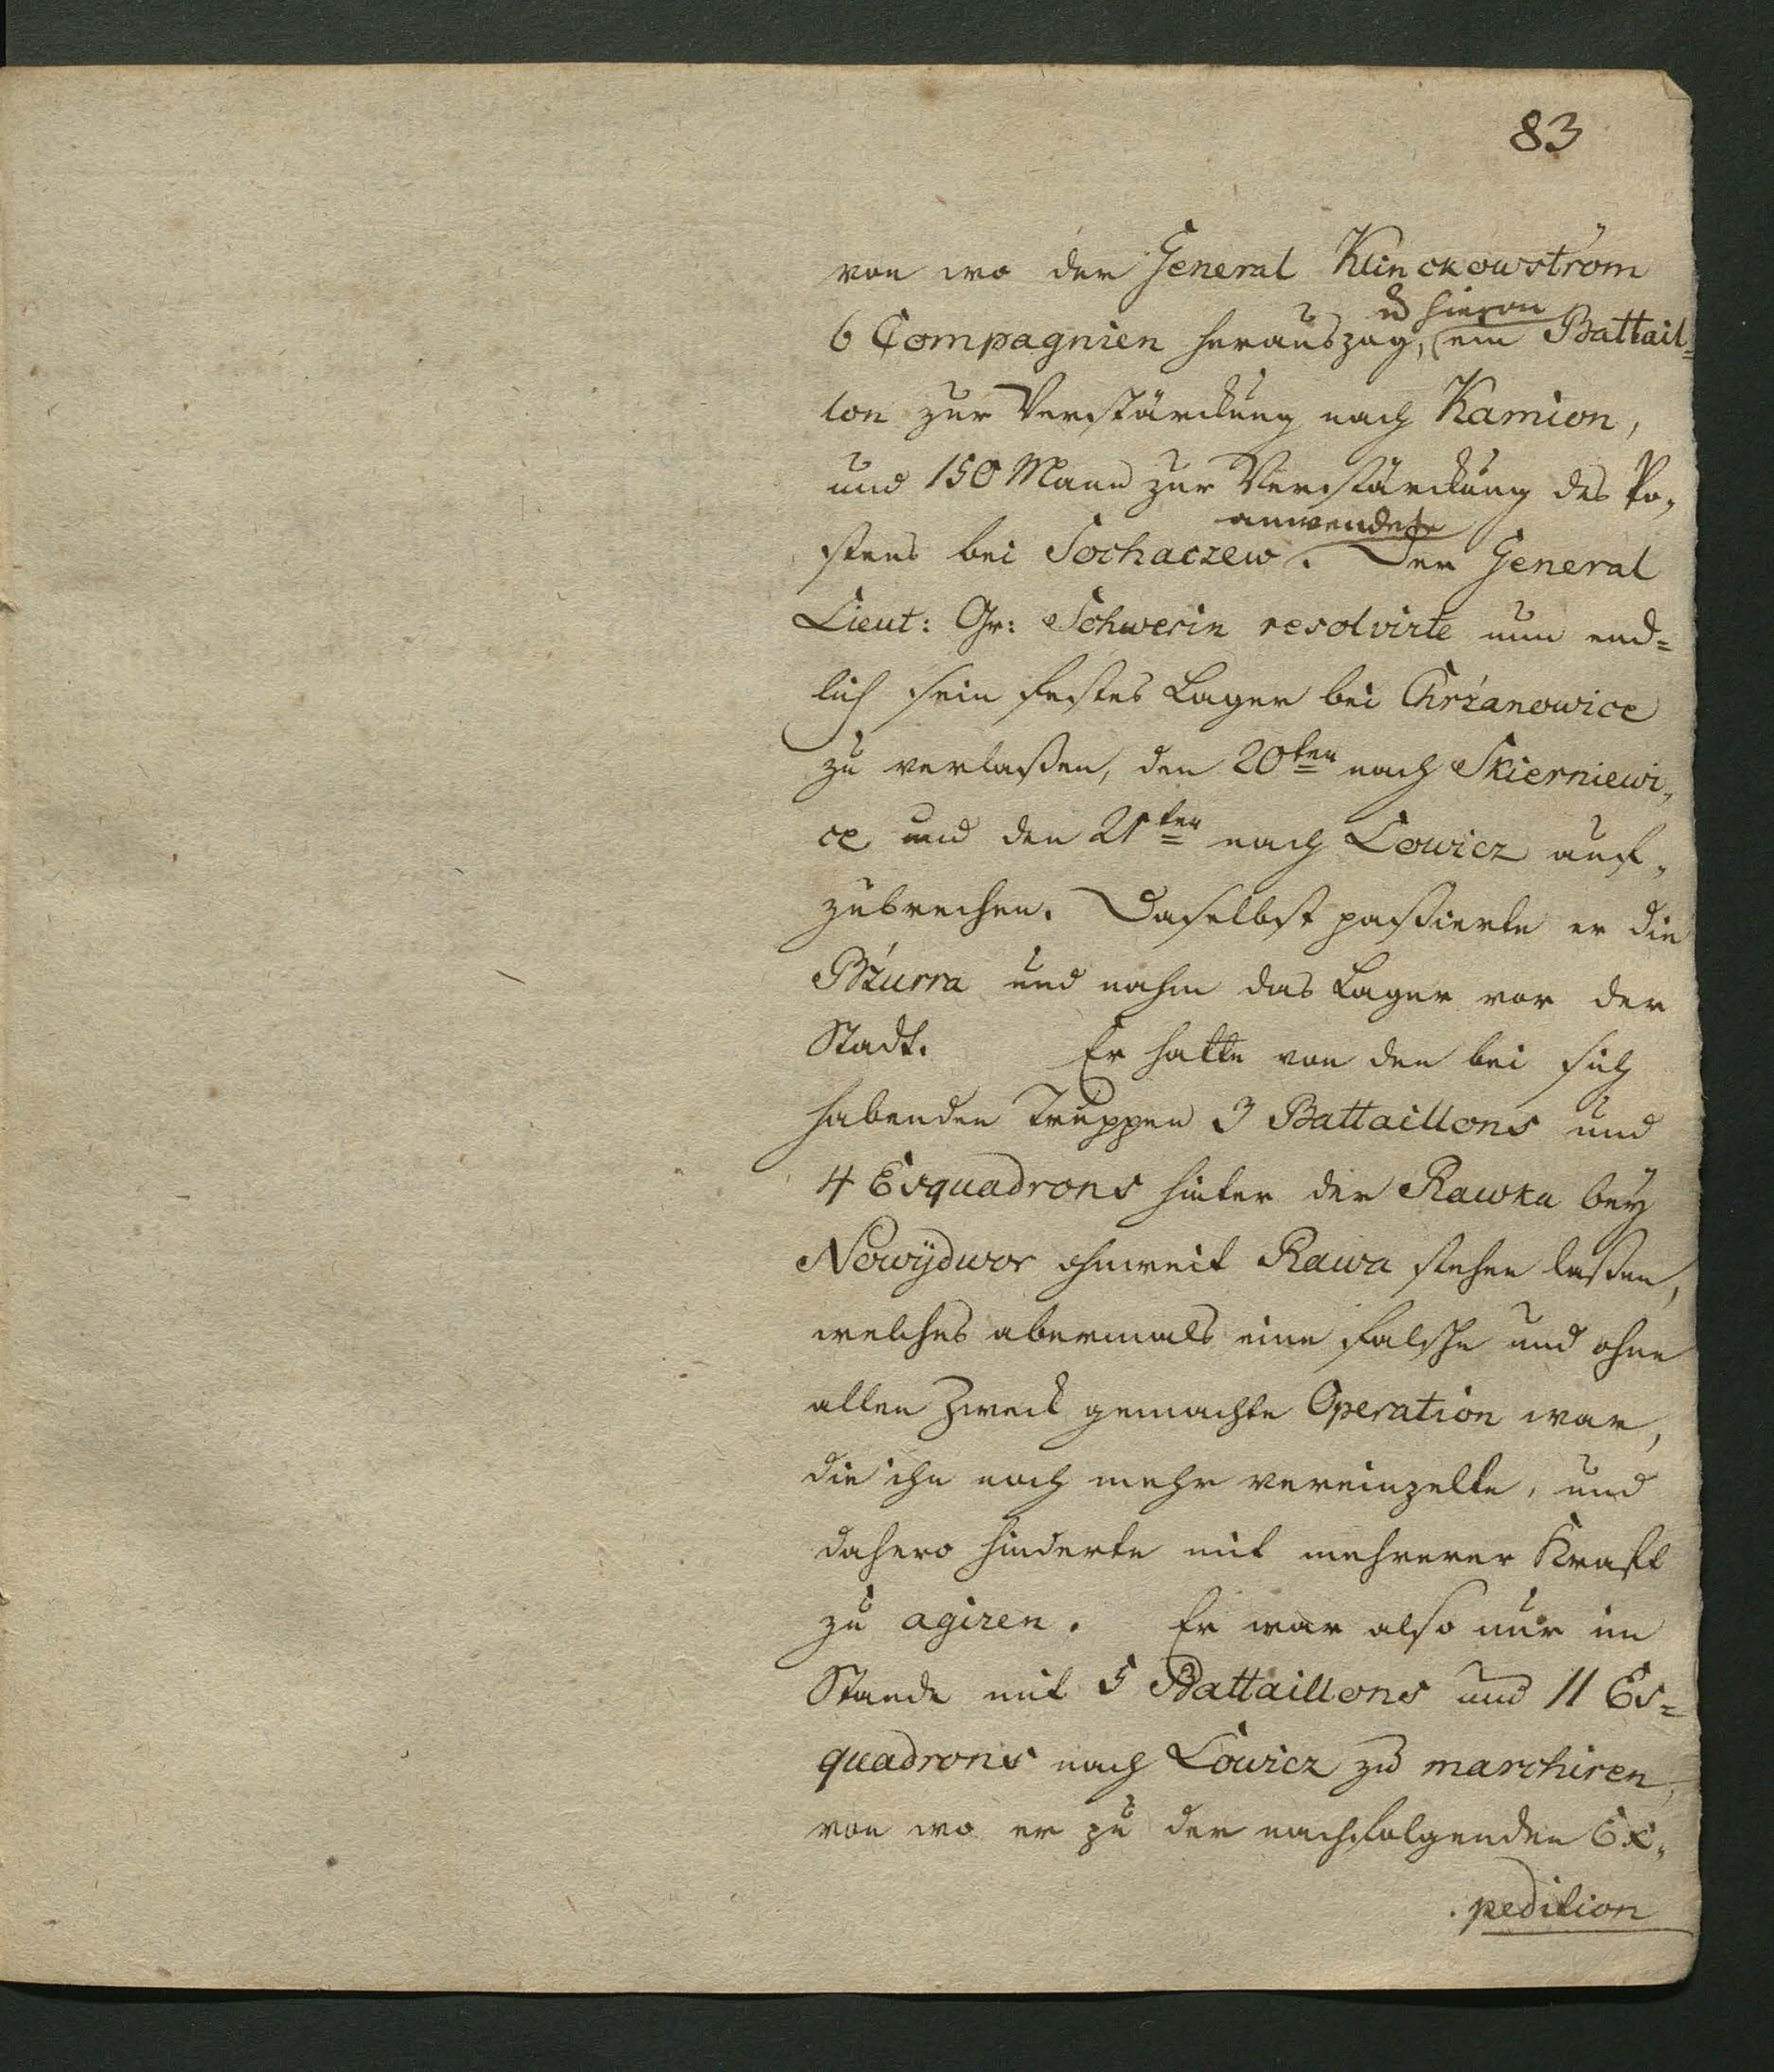 83
von wo der General Klinckowström
u hievon
6 Compagnien herauszog, ein Battail=
lon zur Verstärckung nach Kamion,
und 150 Mann zur Verstärckung des Po-
anwendete
stens bei Sochaczew. Der General
Lieut: Gr: Schwerin resolvirte nun end=
lich sein festes Lager bei Chrzanowice
zu verlaßen, den 20ten nach Skierniewi-
ce und den 21ten nach Lowicz auf-
zubrechen. Daselbst paßierte er die
Bżurra und nahm das Lager vor der
Stadt. Er hatte von den bei sich
habenden Truppen 3 Battaillons und
4 Esquadrons hinter der Rawka bey
Nowÿdwor ohnweit Rawa stehen laßen,
welches abermals eine falsche und ohne
allen Zweck gemachte Operation war,
die ihn noch mehr vereinzelte, und
dahero hinderte mit mehrerer Kraft
zu agiren. Er war also nur im
Stande mit 5 Battaillons und 11 Es=
quadrons nach Lowicz zu marchiren,
von wo er zu der nachfolgenden Ex-
pedition